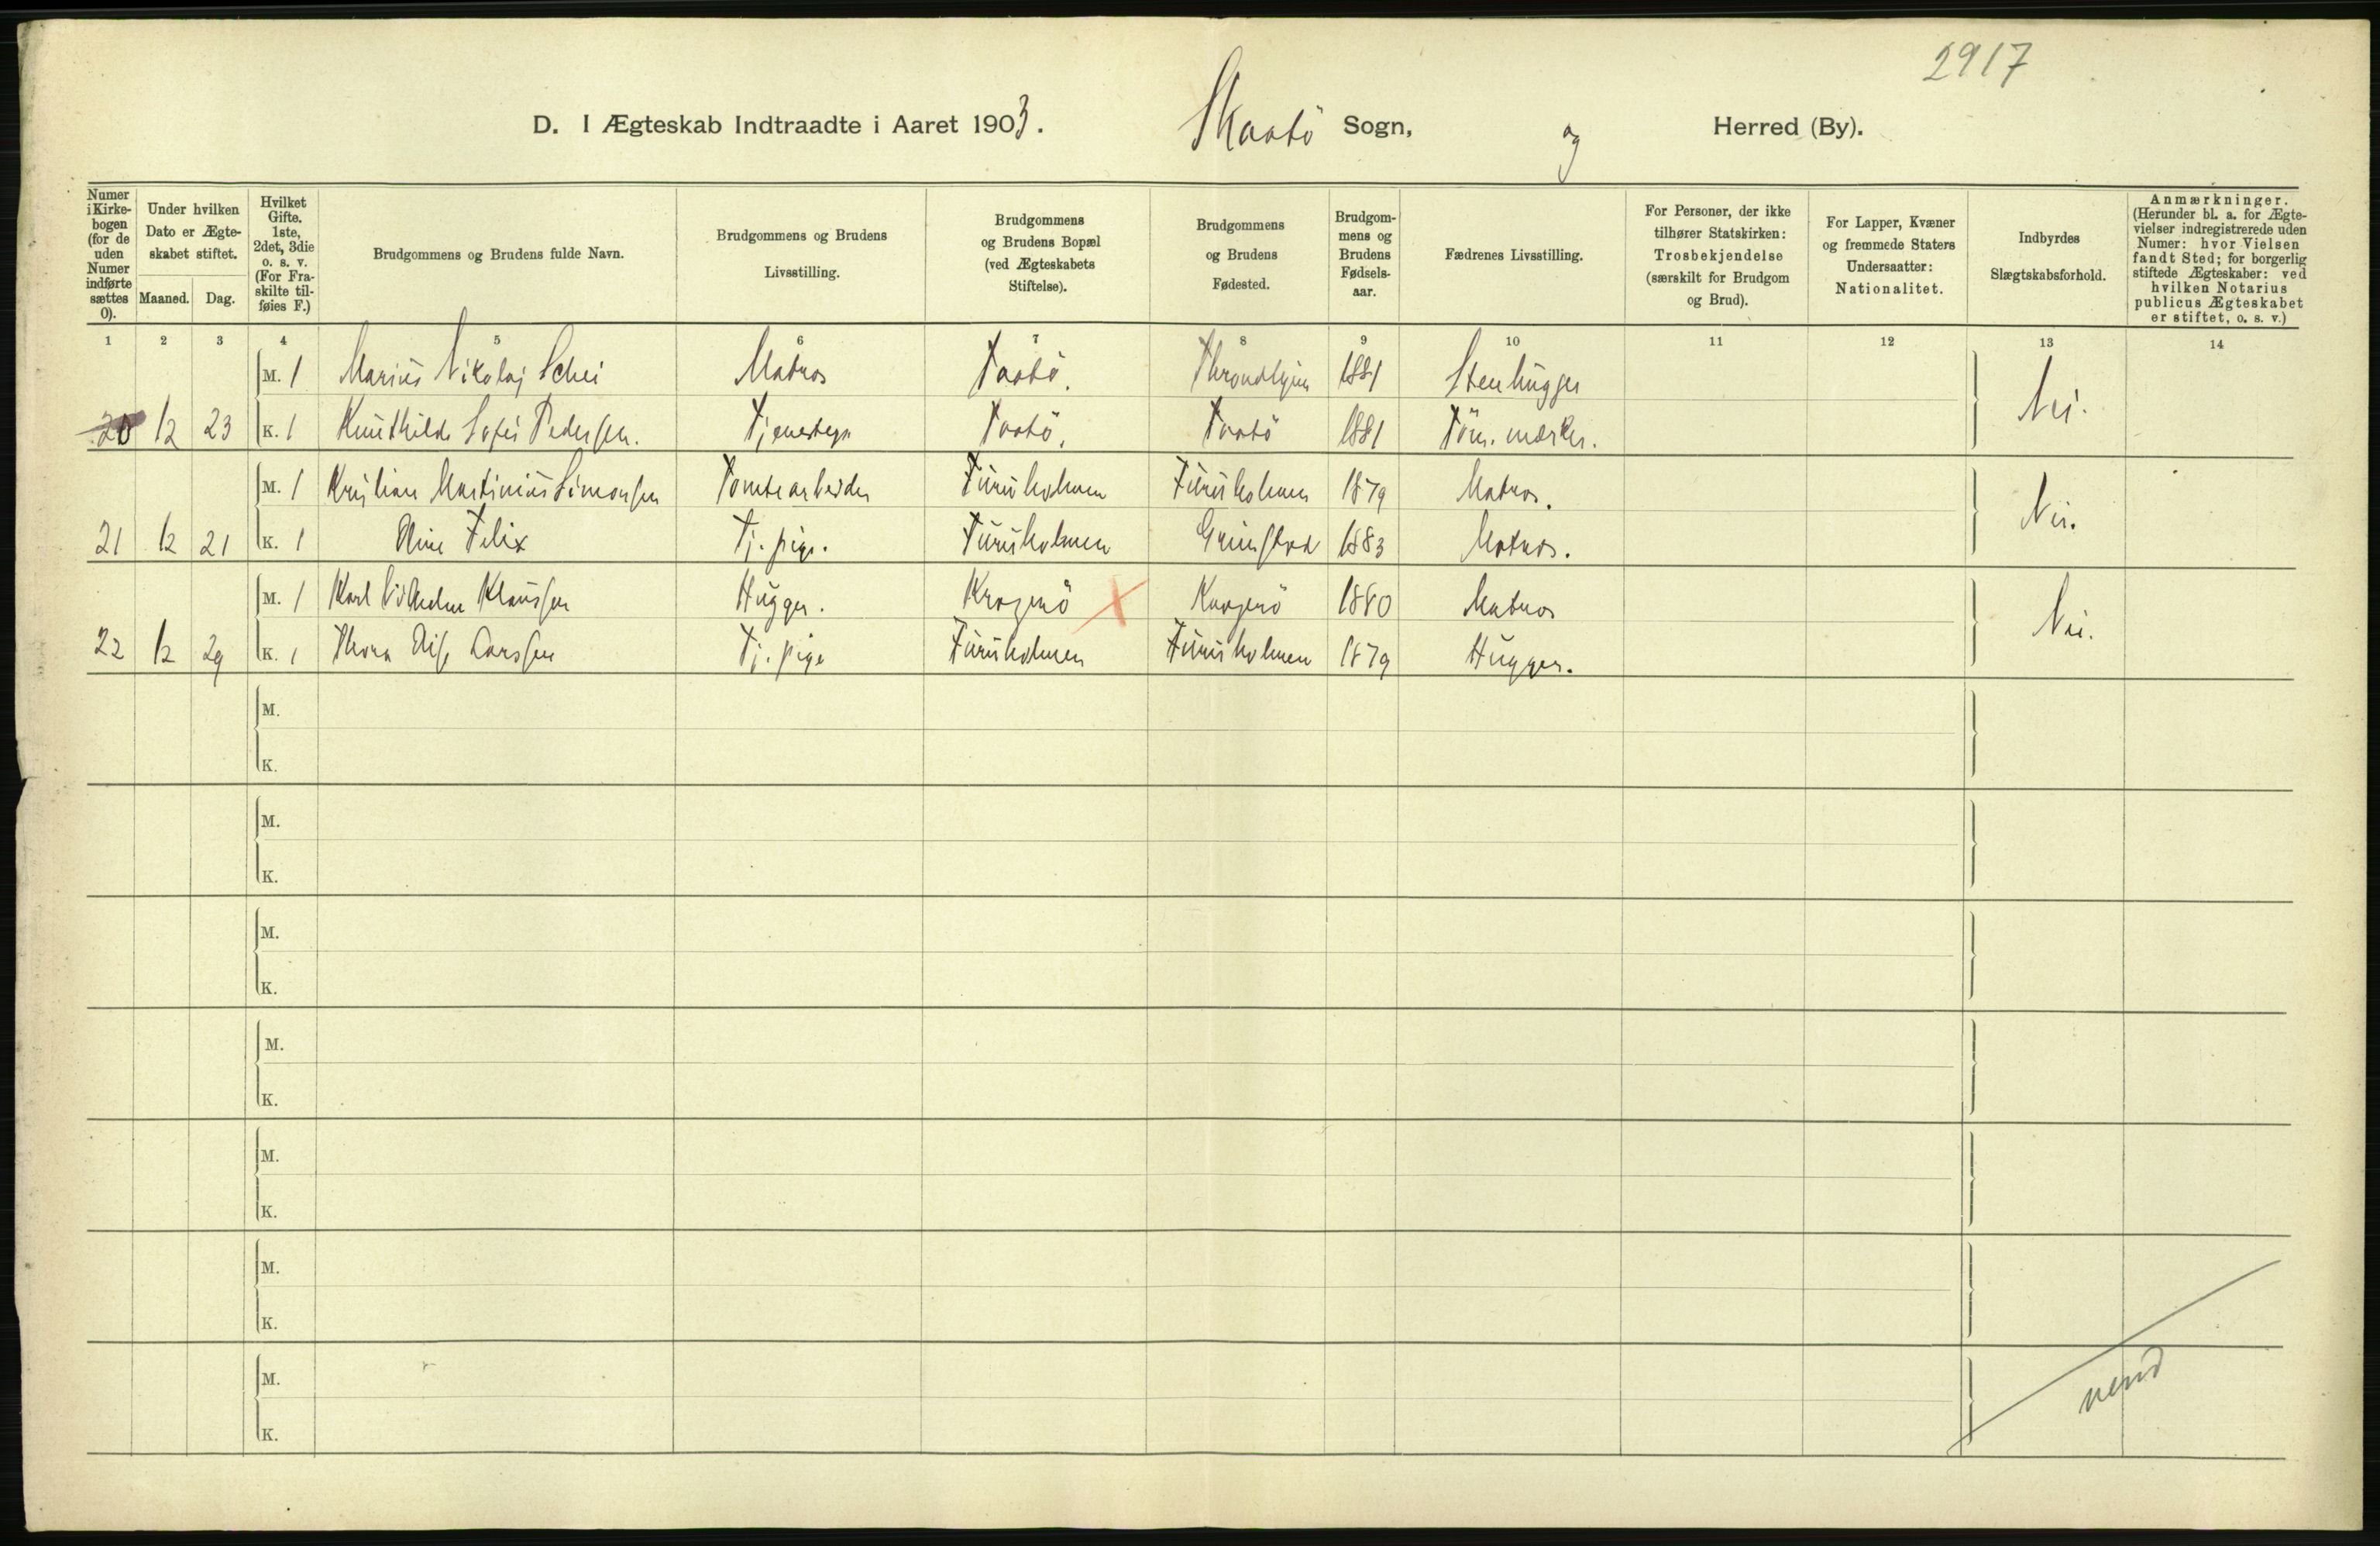 2917
D. I Ægteskab Indtraadte i Aaret 1903. Skaatö Sogn, og Herred (By).
Numer i Kirkebogen (for de uden Numer indførte sættes 0).
Under hvilken Dato er Ægteskabet stiftet.
Maaned. Dag.
Hvilket Gifte. 1ste, 2det, 3die o. s. v. (For Fraskilte tilføies F.)
Brudgommens og Brudens fulde Navn.
Brudgommens og Brudens Livsstilling.
Brudgommens og Brudens Bopæl (ved Ægteskabets Stiftelse).
Brudgommens og Brudens Fødested.
Brudgommens og Brudens Fødselsaar.
Fædrenes Livsstilling.
For Personer, der ikke tilhører Statskirken: Trosbekjendelse (særskilt for Brudgom og Brud).
For Lapper, Kvæner og fremmede Staters Undersaatter: Nationalitet.
Indbyrdes Slægtskabsforhold.
Anmærkninger. (Herunder bl. a. for Ægtevielser indregistrerede uden Numer: hvor Vielsen fandt Sted; for borgerlig stiftede Ægteskaber: ved hvilken Notarius publicus Ægteskabet er stiftet, o. s. v.)
1 2 3 4 5 6 7 8 9 10 11 12 13 14
M. 1 Marius Nikolaj Schei Matros Taatö. Throndhjem 1881 Stenhugger
20 12 23 K. 1 Knuthilde Sofie Pedersen. Taatö. Taatö 1881 Töm. mærker. Nei.
M. 1 Kristian Martinius Simonsen Tomtearbeider Furuholmen Furuholmen 1879 Matros.
21 12 21 K. 1 Felix Tj. pige. Furuholmen Grimstad 1883 Matros. Nei.
M. 1 Karl Vilhelm Klaussen Hugger. Kragerö X Kragerö 1880 Matros
22 12 29 K. 1 Thora Larssen Tj. pige Furuholmen Furuholmen 1879 Hugger. Nei.
M.
K.
M.
K.
M.
K.
M.
K.
M.
K.
M.
K.
M.
K.
vend